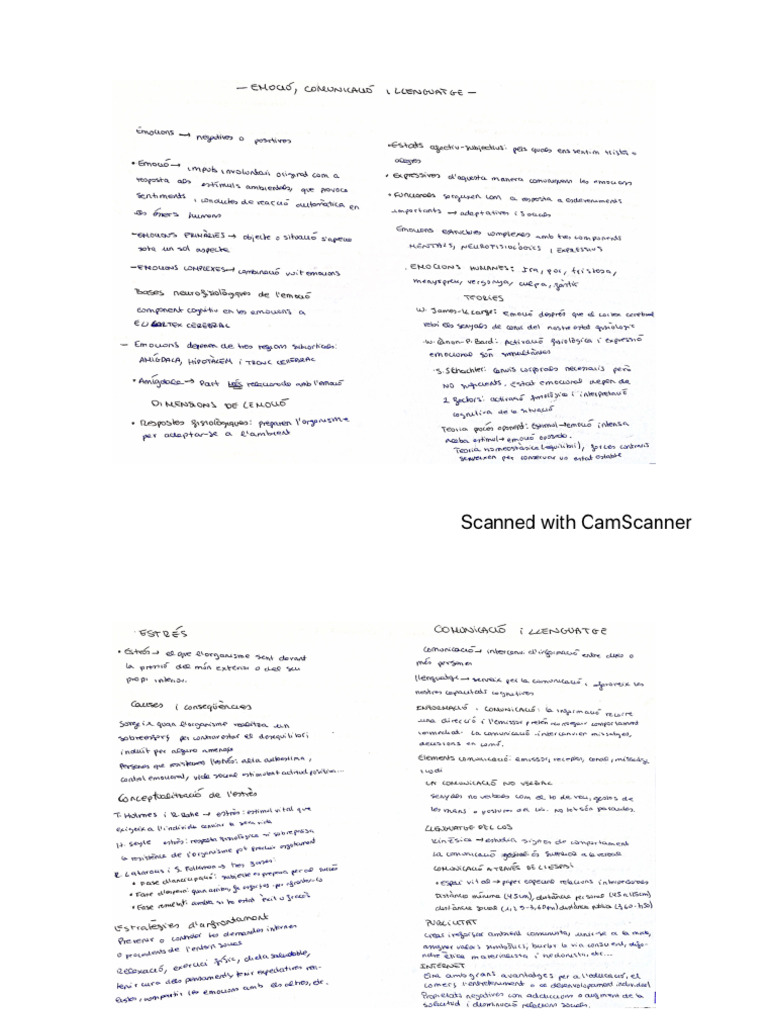 — EMOCIÓ, COMUNICACIÓ i LLENGUATGE —
Emocions → negatives o positives
• Emoció → impuls involuntari original com a
resposta als estímuls ambientals, que provoca
sentiments i conductes de reacció automàtica en
els éssers humans
— EMOCIONS PRIMÀRIES → objecte o situació s'aprecia
sota un sol aspecte
— EMOCIONS COMPLEXES → combinació vuit emocions
Bases neurofisiològiques de l'emoció
component cognitiu en les emocions a
EL CORTEX CEREBRAL
— Emocions depenen de tres regions subcorticals:
AMÍGDALA, HIPOTÀLEM i TRONC CEREBRAL
• Amígdala → Part més relacionada amb l'emoció
DIMENSIONS DE L'EMOCIÓ
• Respostes fisiològiques: preparen l'organisme
per adaptar-se a l'ambient
• Estats afectiu-subjectius: pels quals ens sentim tristos o
alegres
• Expressives d'aquesta manera comuniquem les emocions
• Funcionals sorgeixen com a resposta a esdeveniments
importants → adaptatives i socials
Emocions estructures complexes amb tres components
MENTALS, NEUROFISIOLÒGICS i EXPRESSIUS
. EMOCIONS HUMANES: Ira, por, tristesa,
menyspreu, vergonya, culpa, fàstic
TEORIES
W. James-K. Lange: Emoció després que el cortex cerebral
rebi els senyals de canvi del nostre estat fisiològic
W. Cannon-P. Bard: Activació fisiològica i expressió
emocional són simultànies
S. Schachter: canvis corporals necessaris però
NO suficients, estat emocional depèn de
2 factors: activació fisiològica i interpretació
cognitiva de la situació
Teoria procés oponent: Estímul → emoció intensa
Acaba estímul → emoció oposada.
Teoria homeostàsica (equilibri), forces contràries
serveixen per conservar un estat estable
Scanned with CamScanner
ESTRÉS
• Estrés → el que l'organisme sent davant
la pressió del món exterior o del seu
propi interior.
Causes i conseqüències
Sorgeix quan l'organisme realitza un
sobreesforç per contrarestar el desequilibri
induït per alguna amenaça
Persones que resisteixen l'estrés: alta autoestima,
control emocional, vida social estimulant actitud positiva...
Conceptualització de l'estrés
T. Holmes i R. Rahe → estrés: estímul vital que
exigeix a l'individu canviar la seva vida
H. Seyle estrés: resposta fisiològica si sobrepassa
la resistència de l'organisme pot produir esgotament
R. Lazarus i S. Folkman → tres fases:
• Fase d'anticipació: subjecte es prepara per al succés
• Fase d'espera: quan arriba,
• Fase resultat: si ha estat èxit o fracàs
Estratègies d'afrontament
Prevenir o controlar les demandes internes
o procedents de l'entorn social
Relaxació, exercici físic, dieta saludable,
tenir cura dels pensaments, tenir expectatives rea-
listes, compartir les emocions amb els altres, etc.
COMUNICACIÓ i LLENGUATGE
Comunicació → intercanvi d'informació entre dues o
més persones
Llenguatge → serveix per la comunicació i afavoreix les
nostres capacitats cognitives
INFORMACIÓ i COMUNICACIÓ: la informació recorre
una direcció i l'emissor pretén aconseguir comportament
immediat. La comunicació → intercanvien missatges,
decisions en comú.
Elements comunicació: emissor, receptor, canal, missatge
i codi
LA COMUNICACIÓ NO VERBAL
senyals no verbals com el to de veu, gestos de
les mans o postura
LLENGUATGE DEL COS
Kinèsica → estudia signes de comportament
la comunicació gestual és superior a la verbal
COMUNICACIÓ A TRAVÉS DE L'ESPAI
• espai vital → paper especial relacions interpersonals
distància mínima (45cm), distància personal (45 a 125cm)
distància social (1,25-3,60m) distància pública (3,60-7,50)
PUBLICITAT
Crear i reforçar
assignar valors simbòlics, buidar la via conscient, difo-
ndre ètica materialista i hedonista, etc...
INTERNET
Eina amb grans avantatges per a l'educació, el
comerç, l'entreteniment o desenvolupament individual
Propietats negatives com addiccions o augment de la
solitud i disminució relacions socials.